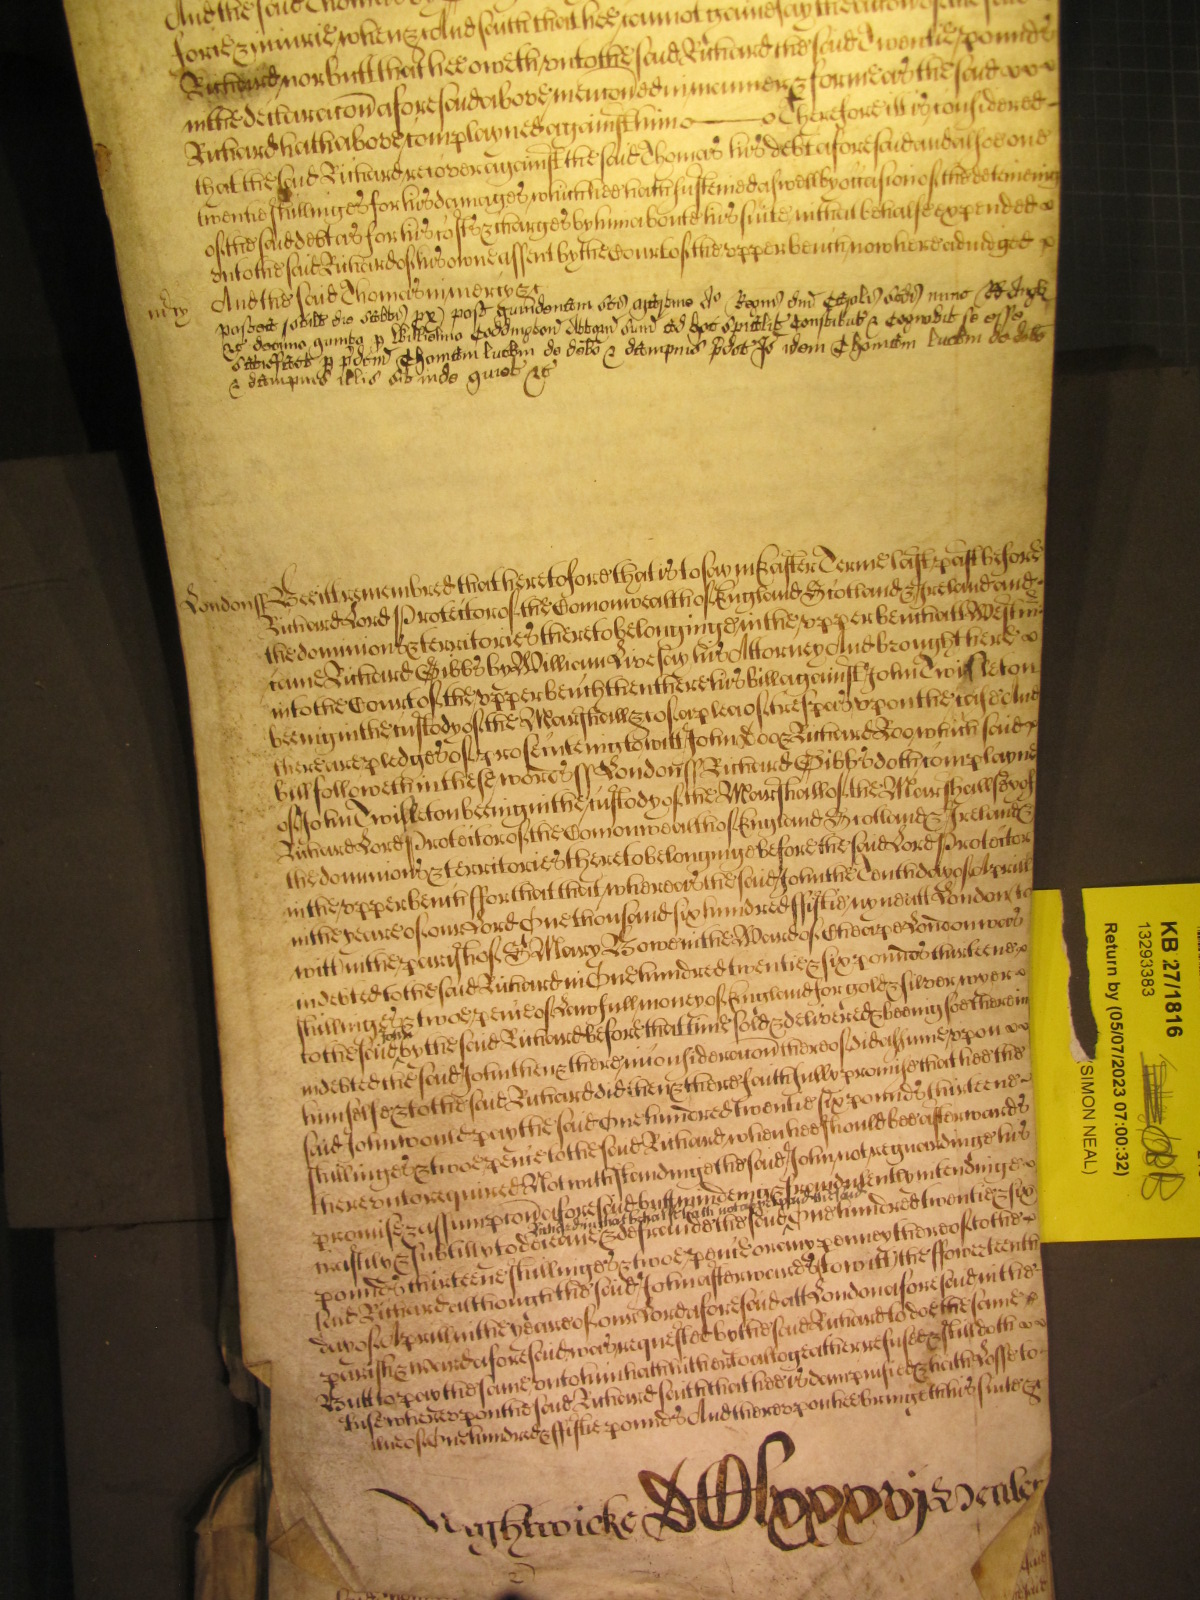 And the said Thomas by
force & iniurie when &c And saith that hee cannot gainesay the accion of the said
Richard nor butt that hee oweth vnto the said Richard the said Twentie pounds
in the declaracon aforesaid above mencioned in manner & forme as the said
Richard hath above complayned against him Therefore itt is considered
that the said Richard recover against the said Thomas his debt aforesaid and alsoe one
twentie shillinges for his damages which hee hath susteined aswell by occasion of the deteineing
of the said debt as for his costs & charges by him aboute his suite in that behalfe expended
vnto the said Richard of his owne assent by the Court of the vpper bench now here adiudged
And the said Thomas in mercy &c
Londonss Bee itt remembred that heretofore that is to say in Easter Terme last past before
Richard Lord Protector of the Comonwealth of England Scotland & Ireland and
the dominions & territories thereto belonginge in the vpper bench att Westmr
came Richard Gibbs by William Livesay his Attorney And brought here
into the Court of the vpper bench then there his bill against John Twisleton
beeing in the custody of the Marshall &c of a plea of trespas vpon the case And
there are pledges of prosecuteing to witt John Doo & Richard Roo which said
bill followeth in these words ss Londonss Richard Gibbs doth complayne
of John Twisleton beeing in the custody of the Marshall of the Marshallsey of
Richard Lord Protector of the Comonwealth of England Scotland & Ireland &
the dominions & territories thereto belonginge before the said Lord Protector
in the vpper bench ss for that that whereas the said John the Tenth day of Aprill
in the yeare of our Lord One thousand six hundred ffiftie nyne att London to
witt in the parish of St Mary Bowe in the Ward of Cheape London was
indebted to the said Richard in One hundred twentie & six pounds thirteene
shillinges & twoe pence of lawfull money of England for gold & silver wyer
John
to the said by the said Richard before that time sold & delivered & beeing soe therein
indebted the said John then & there in consideracon thereof did assume vpon
himselfe & to the said Richard did then & there faithfully promise that hee the
said John would pay the said One hundred twentie six pounds thirteene
shillinges & twoe pence to the said Richard when hee should bee afterwards
therevnto required Notwithstandinge the said John not reguardinge his
promise & assumpcon aforesaid butt mindeing & fraudulently intendinge
Richard in that behalfe hath not as yet paid the said
craftily & subtilly to deceave & defraude the said One hundred twentie & six
pounds thirteene shillinges & twoe pence or any penney thereof to the
said Richard althought the said John afterwards to witt the ffowerteenth
day of Aprill in the yeare of our Lord aforesaid att London aforesaid in the
parish & ward aforesaid was requested by the said Richard to doe the same
Butt to pay the same vnto him hath hitherto altogeather refused & still doth
refuse wherevpon the said Richard saith that hee is dampnified & hath losse to
value of One hundred & ffiftie pounds And therevpon hee bringeth his suite &
Wightwicke
KB 27/1816
13293383
Return by (05/07/2023 07:00:32)
SIMON NEAL)